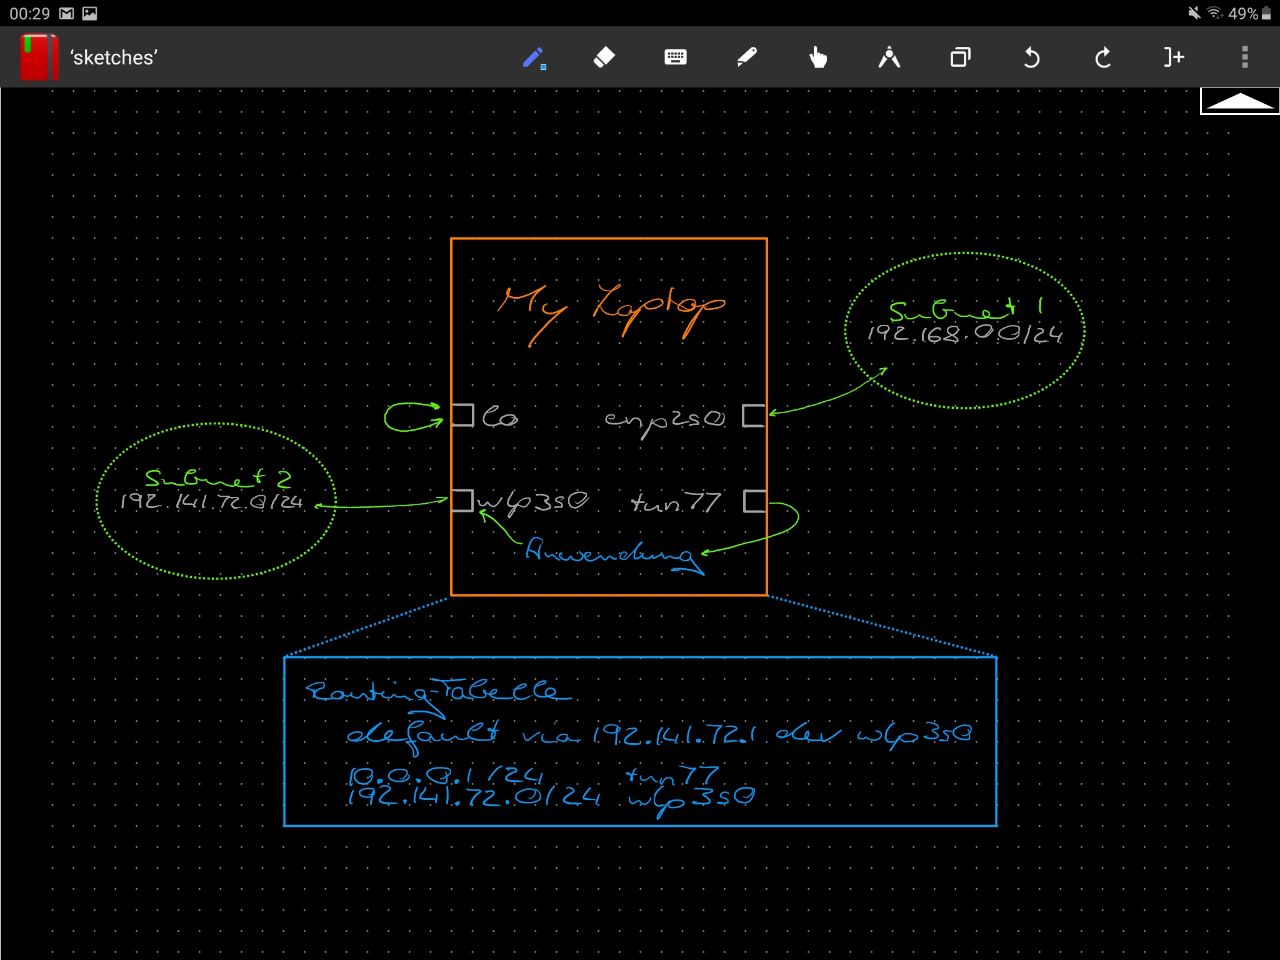 00:29
49%
'sketches'
My Laptop
Subnet 1
192.168.0.0/24
lo
enp2s0
Subnet 2
192.141.72.0/24
wlp3s0
tun77
Anwendung
Routing-Tabelle
default via 192.141.72.1 dev wlp3s0
10.0.0.1/24 tun77
192.141.72.0/24 wlp3s0